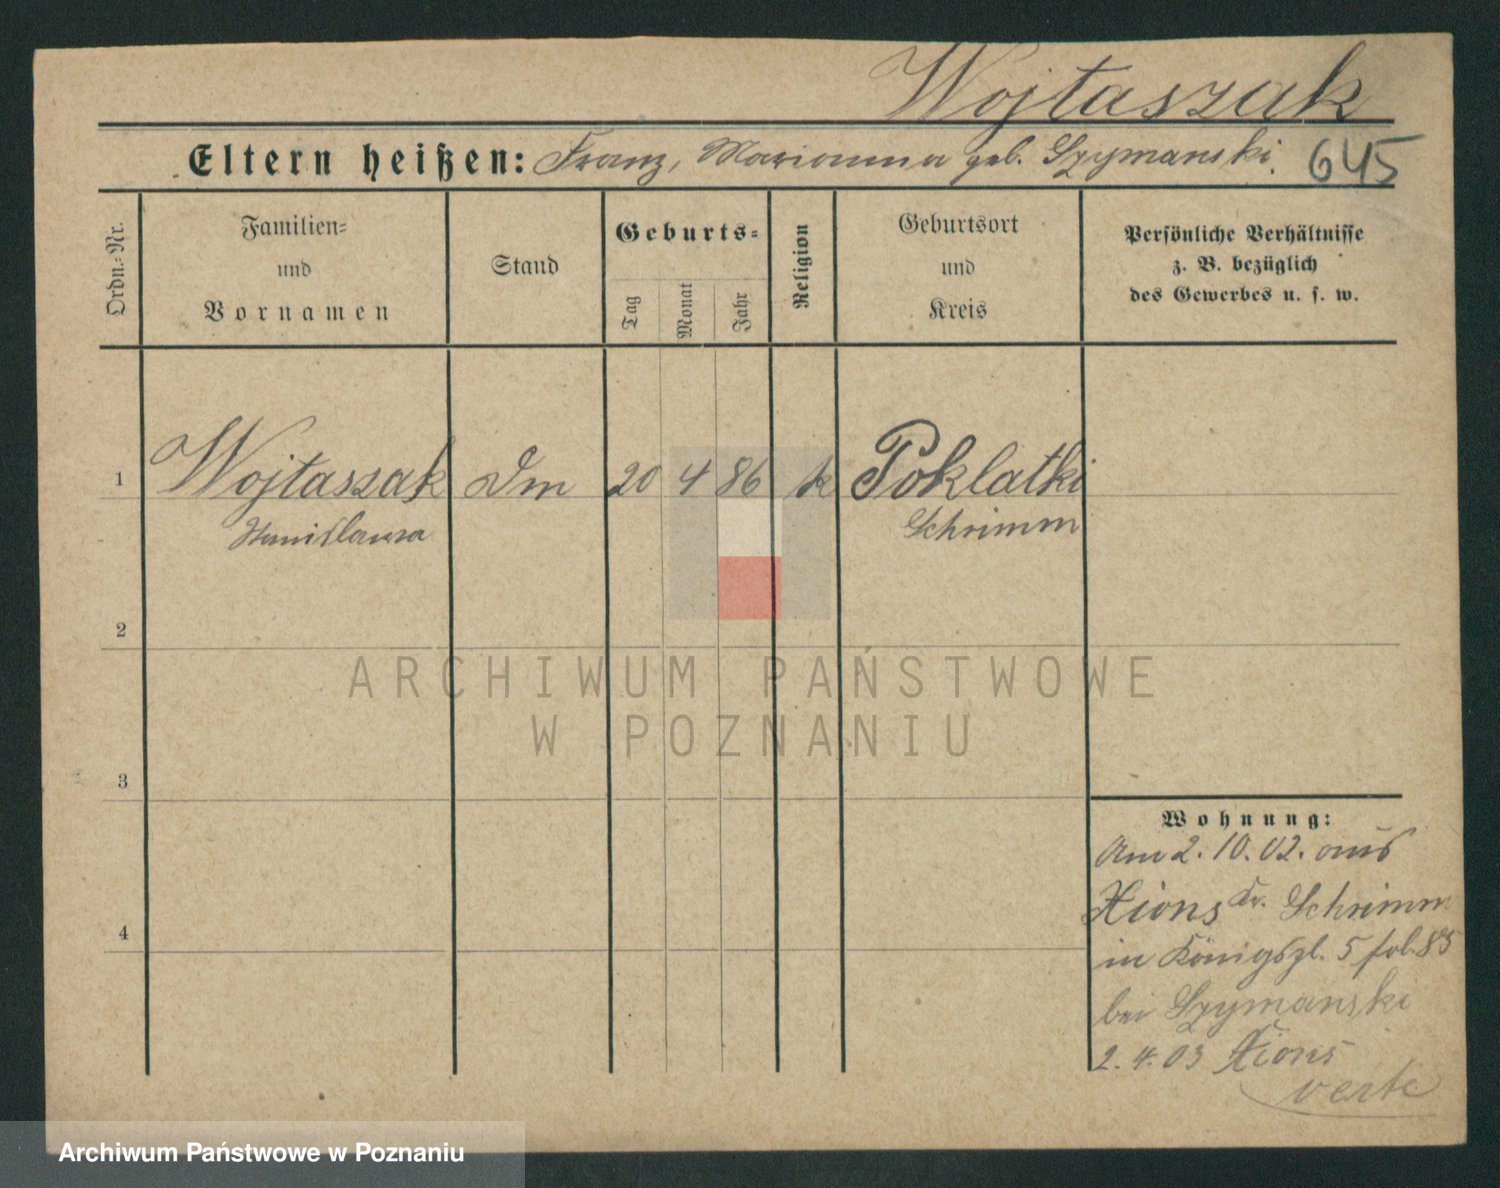 Wojtaszak
Eltern heißen: Franz, Marianna geb. Szymanski. 645
Ordn.-Nr.
Familien-
und
Vornamen
Stand
Geburts-
Tag
Monat
Jahr
Religion
Geburtsort
und
Kreis
Persönliche Verhältnisse
z. B. bezüglich
des Gewerbes u. s. w.
1 Wojtaszak Dm 20 4 86 k Poklatki
Stanislawa Schrimm
2
ARCHIWUM PAŃSTWOWE
W POZNANIU
3
Wohnung:
Am 2. 10. 02. aus
Xions Kr. Schrimm
4
in Königspl. 5 fol. 85
bei Szymanski
2. 4. 03 Xions
verte
Archiwum Państwowe w Poznaniu